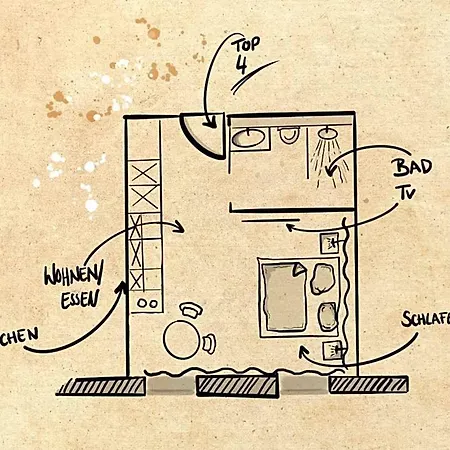 TOP
4
BAD
TV
WOHNEN/
ESSEN
CHEN
SCHLAFE